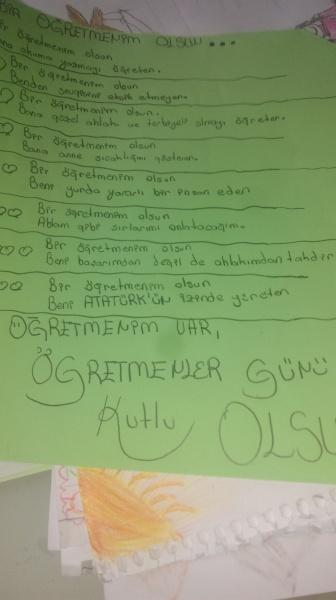 BİR ÖĞRETMENİM OLSUN...
Bir öğretmenim olsun
Bana okuma yazmayı öğreten.
Bir öğretmenim olsun
Benden sevgisini eksik etmeyen.
Bir öğretmenim olsun.
Bana güzel ahlakı ve terbiyeli olmayı öğreten.
Bir öğretmenim olsun
Bana anne sıcaklığını gösteren.
Bir öğretmenim olsun
Beni yurda yararlı bir insan eden
Bir öğretmenim olsun
Ablam gibi sırlarımı anlatacağım.
Bir öğretmenim olsun
Beni başarımdan değil de ahlakımdan takdir
Bir öğretmenim olsun
Beni ATATÜRK'ÜN izinde yürüten
ÖĞRETMENİM VAR,
ÖĞRETMENLER GÜNÜ
Kutlu OLSU